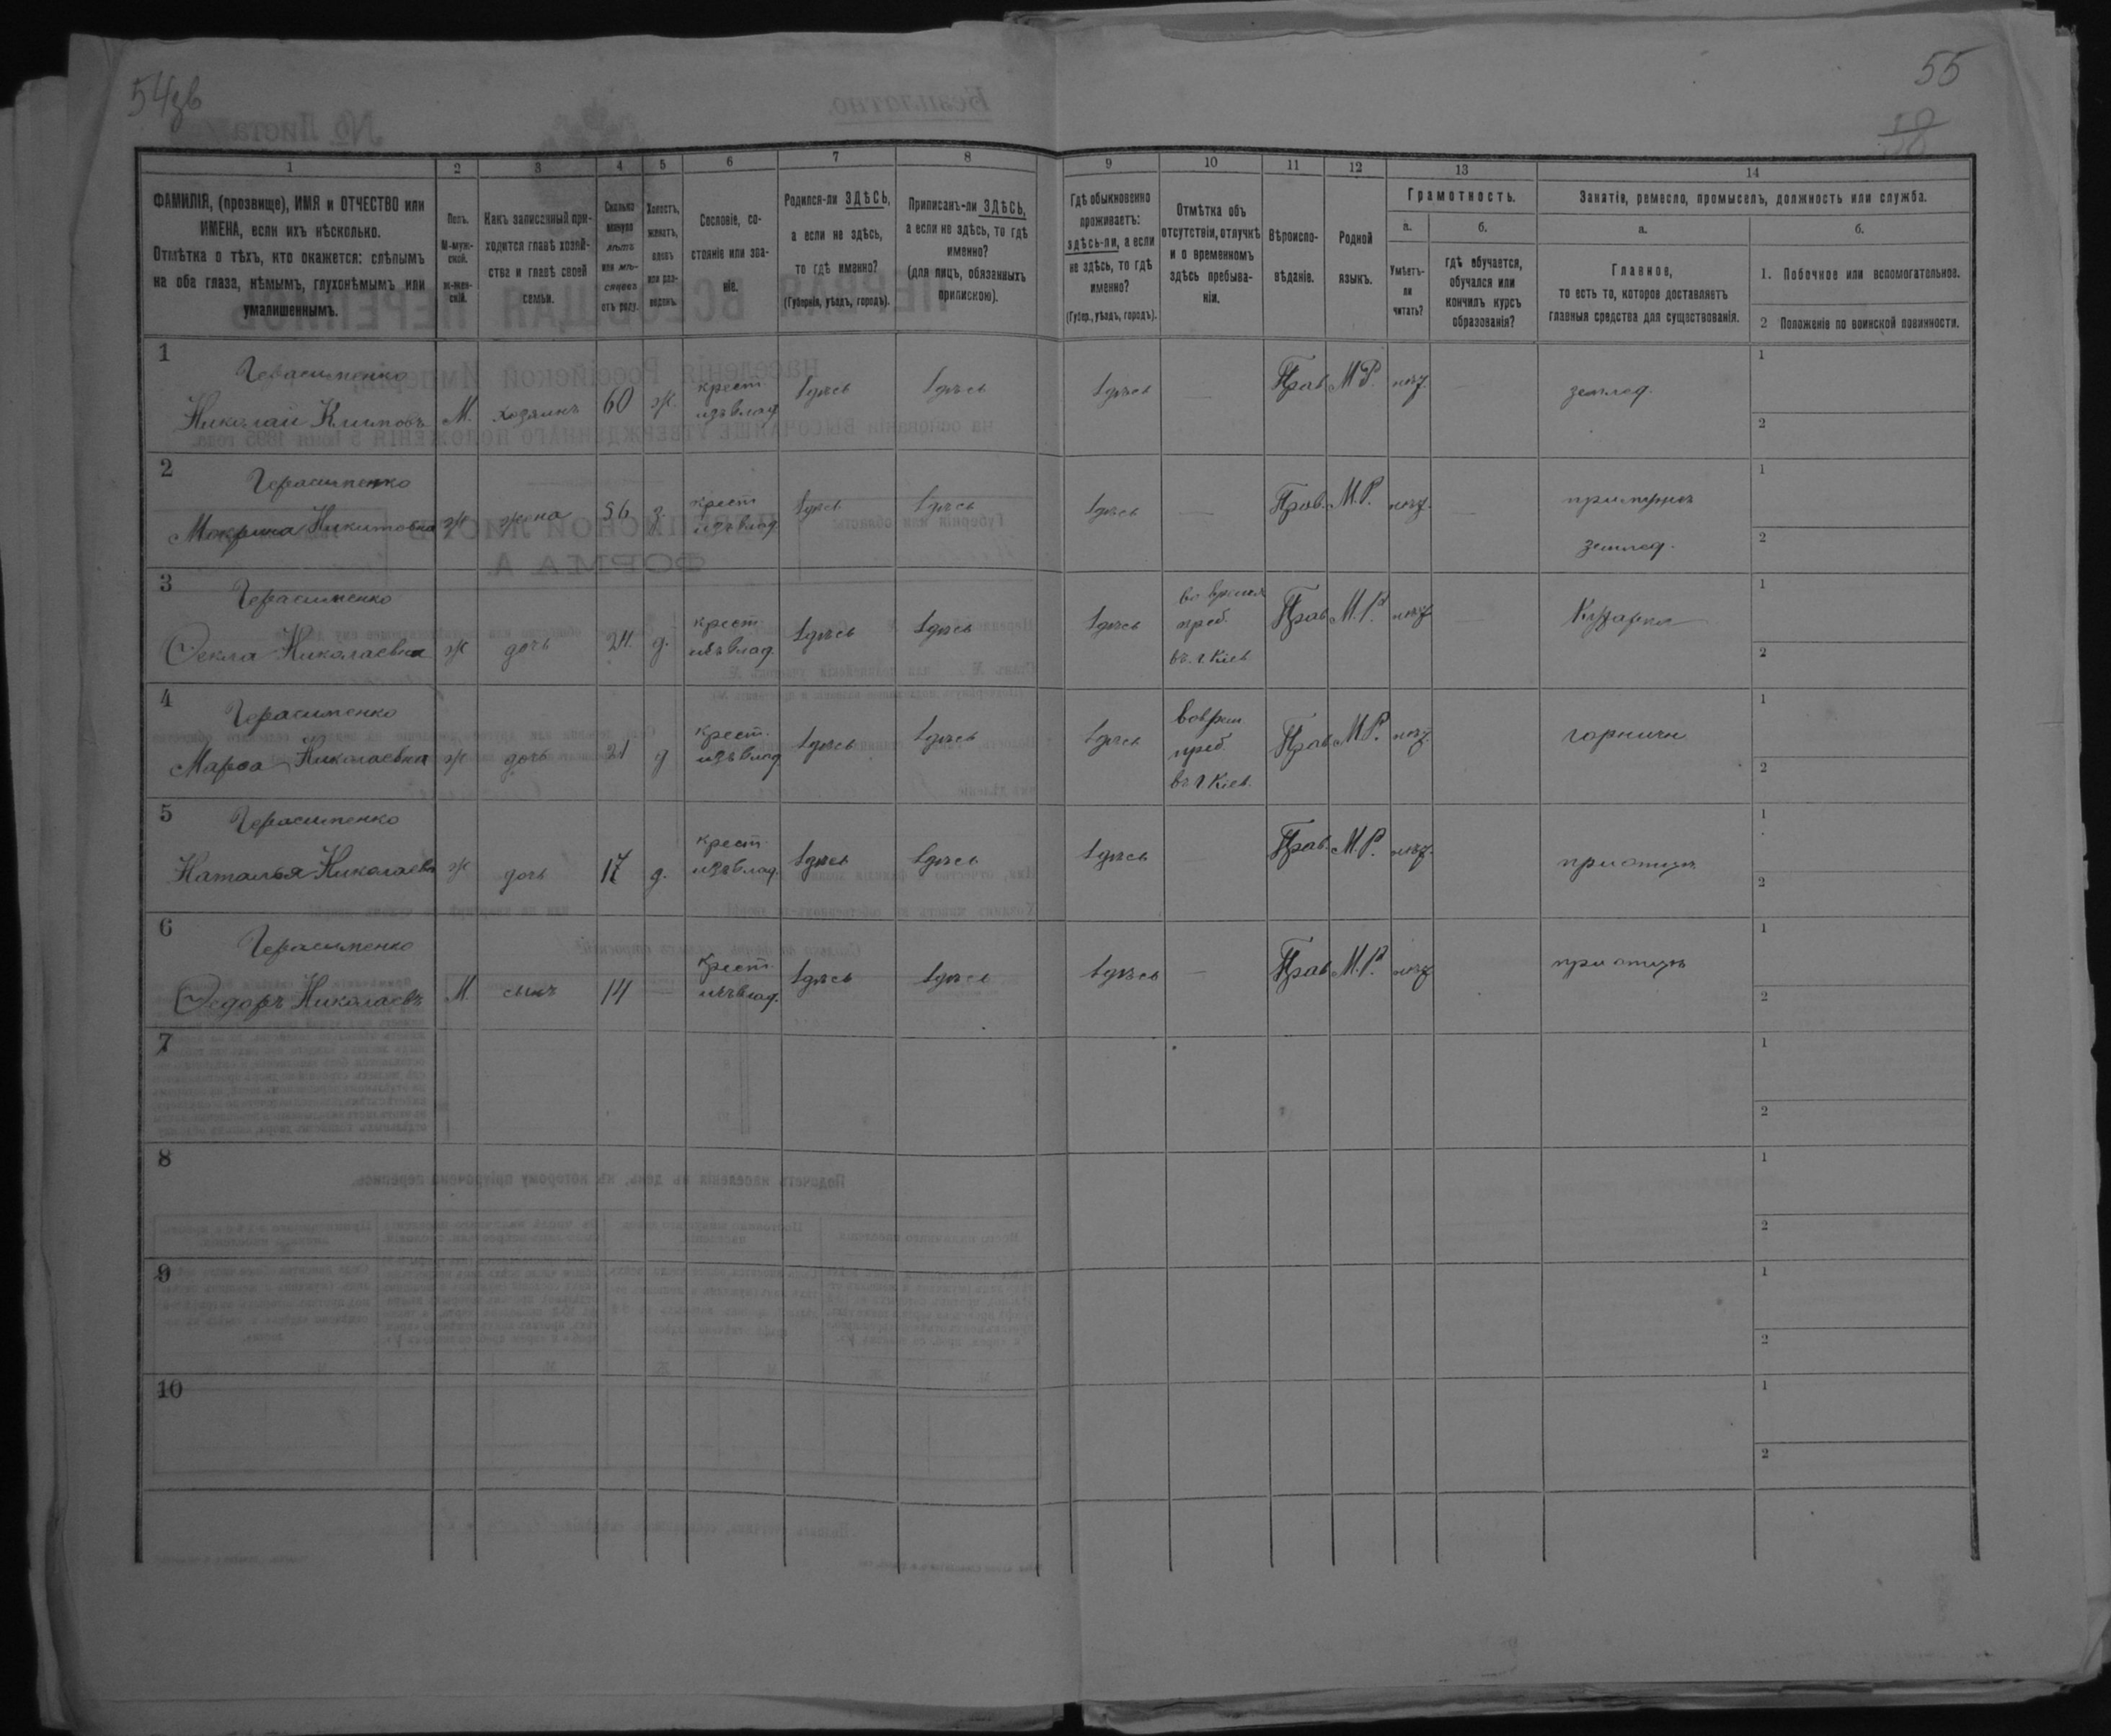 54зв
55
38
1
2
3
4
5
6
7
8
9
10
11
12
13
14
ФАМИЛІЯ, (прозвище), ИМЯ и ОТЧЕСТВО или
ИМЕНА, если ихъ нѣсколько.
Отмѣтка о тѣхъ, кто окажется: слѣпымъ
на оба глаза, нѣмымъ, глухонѣмымъ или
умалишеннымъ.
Полъ.
М-муж-
ской.
ж-жен-
скій.
Какъ записанный при-
ходится главѣ хозяй-
ства и главѣ своей
семьи.
Сколько
минуло
лѣтъ
или мѣ-
сяцевъ
отъ роду.
Холостъ,
женатъ,
вдовъ
или раз-
веденъ.
Сословіе, со-
стояніе или зва-
ніе.
Родился-ли ЗДѢСЬ,
а если не здѣсь,
то гдѣ именно?
(Губернія, уѣздъ, городъ).
Приписанъ-ли ЗДѢСЬ,
а если не здѣсь, то гдѣ
именно?
(для лицъ, обязанныхъ
припискою).
Гдѣ обыкновенно
проживаетъ:
здѣсь-ли, а если
не здѣсь, то гдѣ
именно?
(Губер., уѣздъ, городъ).
Отмѣтка объ
отсутствіи, отлучкѣ
и о временномъ
здѣсь пребыва-
ніи.
Вѣроиспо-
вѣданіе.
Родной
языкъ.
Грамотность.
а.
Умѣетъ-
ли
читать?
б.
гдѣ обучается,
обучался или
кончилъ курсъ
образованія?
Занятія, ремесло, промыселъ, должность или служба.
а.
Главное,
то есть то, которое доставляетъ
главныя средства для существованія.
б.
1. Побочное или вспомогательное.
2 Положеніе по воинской повинности.
1
Герасименко
Николай Климовъ М. хозяинъ 60 ж. крест. изъ влад. здѣсь здѣсь здѣсь — Прав. М.Р. нѣт. — землед.
1
2
2
Герасименко
Мокрина Никитовна ж жена 56 з. крест. изъ влад. здѣсь здѣсь здѣсь — Прав. М.Р. нѣт. —
землед.
1
2
3
Герасименко
Ѳекла Николаевна ж дочь 24. д. крест. изъ влад. здѣсь здѣсь здѣсь
во время
преб.
въ г. Кіев
Прав М.Р. нѣт — Кухарка
1
2
4
Герасименко
Марѳа Николаевна ж дочь 21 д крест. изъ влад здѣсь здѣсь здѣсь
во врем.
преб.
въ г. Кіев.
Прав М.Р. нѣт. горничн
1
2
5
Герасименко
Наталья Николаевн ж дочь 17 д. крест. изъ влад. здѣсь здѣсь здѣсь — Прав. М.Р. нѣт. при отцѣ
1
2
6
Герасименко
Ѳедоръ Николаевъ М. сынъ 14 — крест. изъ влад. здѣсь здѣсь здѣсь — Прав М.Р. нѣт при отцѣ
1
2
7
1
2
8
1
2
9
1
2
10
1
2